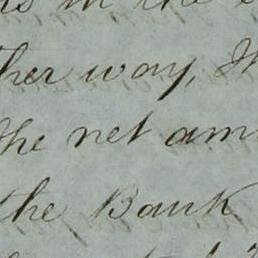 in the
her way,
the net am
the Bank